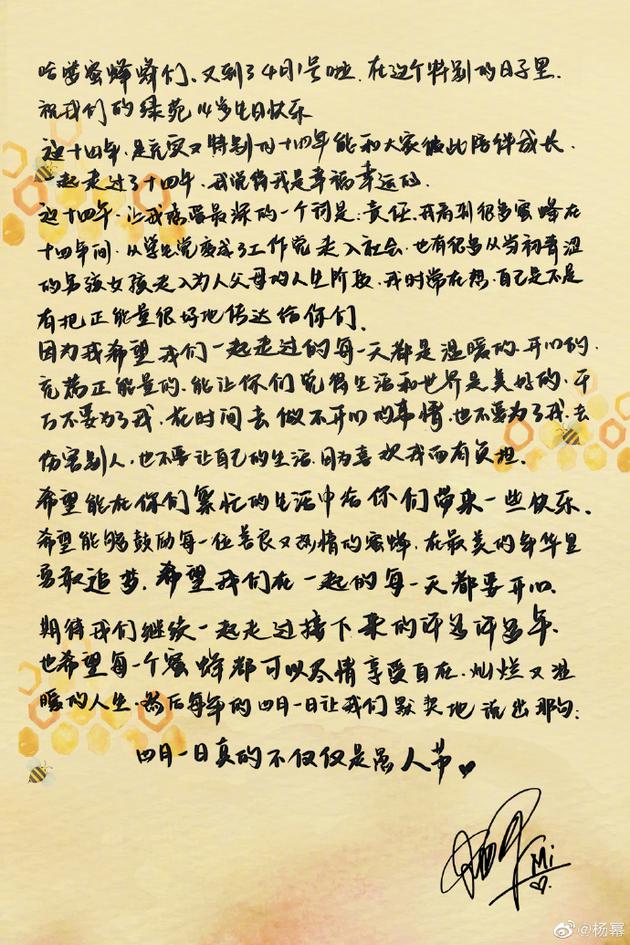 哈喽蜜蜂蜂们、又到了4月1号啦、在这个特别的日子里、
祝我们的绿苑14岁生日快乐
这十四年、是充实又特别的十四年能和大家彼此陪伴成长、
一起走过了十四年、我觉得我是幸福幸运的、
这十四年、让我感受最深的一个词是：责任、我看到很多蜜蜂在
十四年间、从学生党变成了工作党走入社会、也有很多从当初青涩
的男孩女孩走入为人父母的人生阶段、我时常在想、自己是不是
有把正能量很好地传达给你们、
因为我希望我们一起走过的每一天都是温暖的、开心的、
充满正能量的、能让你们觉得生活和世界是美好的、千
万不要为了我、花时间去做不开心的事情、也不要为了我、去
伤害别人、也不要让自己的生活、因为喜欢我而有负担、
希望能在你们繁忙的生活中给你们带来一些快乐、
希望能够鼓励每一位善良又热情的蜜蜂、在最美的年华里
勇敢追梦、希望我们在一起的每一天都要开心、
期待我们继续一起走过接下来的许多许多年、
也希望每一个蜜蜂都可以尽情享受自在、灿烂又温
暖的人生、然后每年的四月一日让我们默契地说出那句：
四月一日真的不仅仅是愚人节♥
杨幂 Mi♡
@杨幂